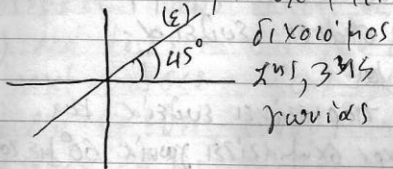 (ε)
45°
διχοτόμος
της, 3ης
γωνίας